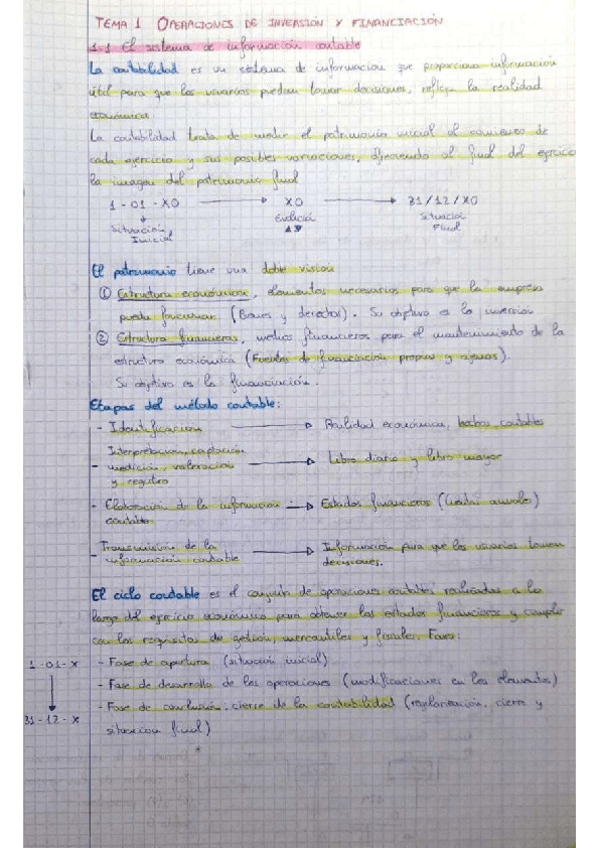 TEMA 1 OPERACIONES DE INVERSIÓN Y FINANCIACIÓN
1.1 El sistema de información contable
La contabilidad es un sistema de información que proporciona información
útil para que los usuarios puedan tomar decisiones, refleja la realidad
económica.
La contabilidad trata de medir el patrimonio inicial al comienzo de
cada ejercicio y sus posibles variaciones, ofreciendo al final del ejercicio
la imagen del patrimonio final
1-01-X0 → X0 → 31/12/X0
Situación Inicial Evolución ▲▼ Situación Final
El patrimonio tiene una doble visión
① Estructura económica, elementos necesarios para que la empresa
pueda funcionar (Bienes y derechos). Su objetivo es la inversión
② Estructura financiera, medios financieros para el mantenimiento de la
estructura económica (Fuentes de financiación propias y ajenas).
Su objetivo es la financiación.
Etapas del método contable:
- Identificación → Realidad económica, hechos contables
Interpretación, captación
- medición, valoración → Libro diario y libro mayor
y registro
- Elaboración de la información → Estados financieros (Cuentas anuales)
contable
- Transmisión de la → Información para que los usuarios tomen
información contable decisiones.
El ciclo contable es el conjunto de operaciones contables realizadas a lo
largo del ejercicio económico para obtener los estados financieros y cumplir
con los requisitos de gestión, mercantiles y fiscales. Fases:
1-01-X - Fase de apertura (situación inicial)
↓ - Fase de desarrollo de las operaciones (modificaciones en los elementos)
31-12-X - Fase de conclusión: cierre de la contabilidad (regularización, cierre y
situación final)